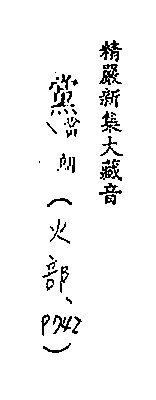 精嚴新集大藏音
黨、當朗(火部、P742)